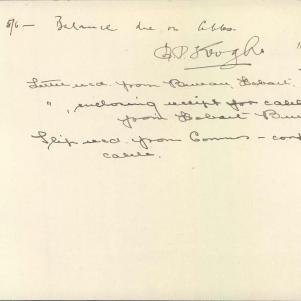 5/6 — Balance due on
B.P. Keogh
Letter recd. from Bureau, Hobart.
" , enclosing receipt for cable
from Hobart Bur
Slip recd. from Comms — con
cable.